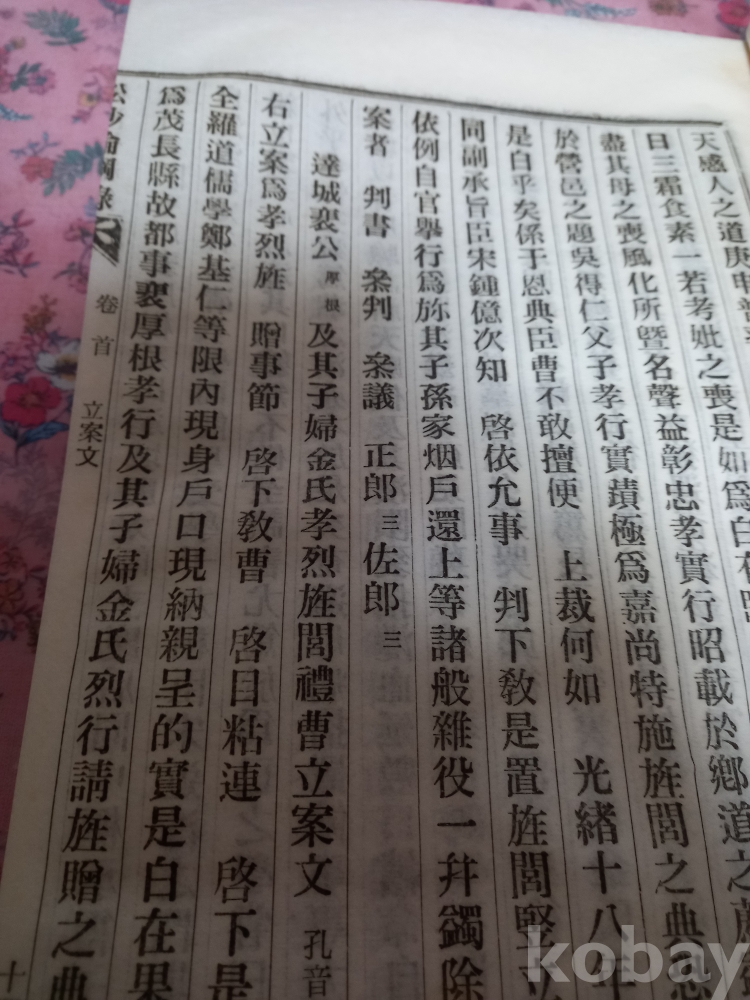 天感人之道庚申
日三霜食素一若考妣之喪是如爲白在
盡其母之喪風化所曁名聲益彰忠孝實行昭載於鄕道之薦
於營邑之題吳得仁父子孝行實蹟極爲嘉尙特施旌閭之典恐
是白乎矣係于恩典臣曹不敢擅便 上裁何如 光緖十八年
同副承旨臣宋鍾億次知 啓依允事 判下敎是置旌閭竪立
依例自官擧行爲旀其子孫家烟戶還上等諸般雜役一幷蠲除
案者 判書 叅判 叅議 正郎 三 佐郎 三
達城裵公 厚根 及其子婦金氏孝烈旌閭禮曹立案文 孔音
右立案爲孝烈旌 贈事節 啓下敎曹 啓目粘連 啓下是
全羅道儒學鄭基仁等限內現身戶口現納親呈的實是白在果
爲茂長縣故都事裵厚根孝行及其子婦金氏烈行請旌贈之典
松沙倫綱錄 卷首 立案文 十
kobay